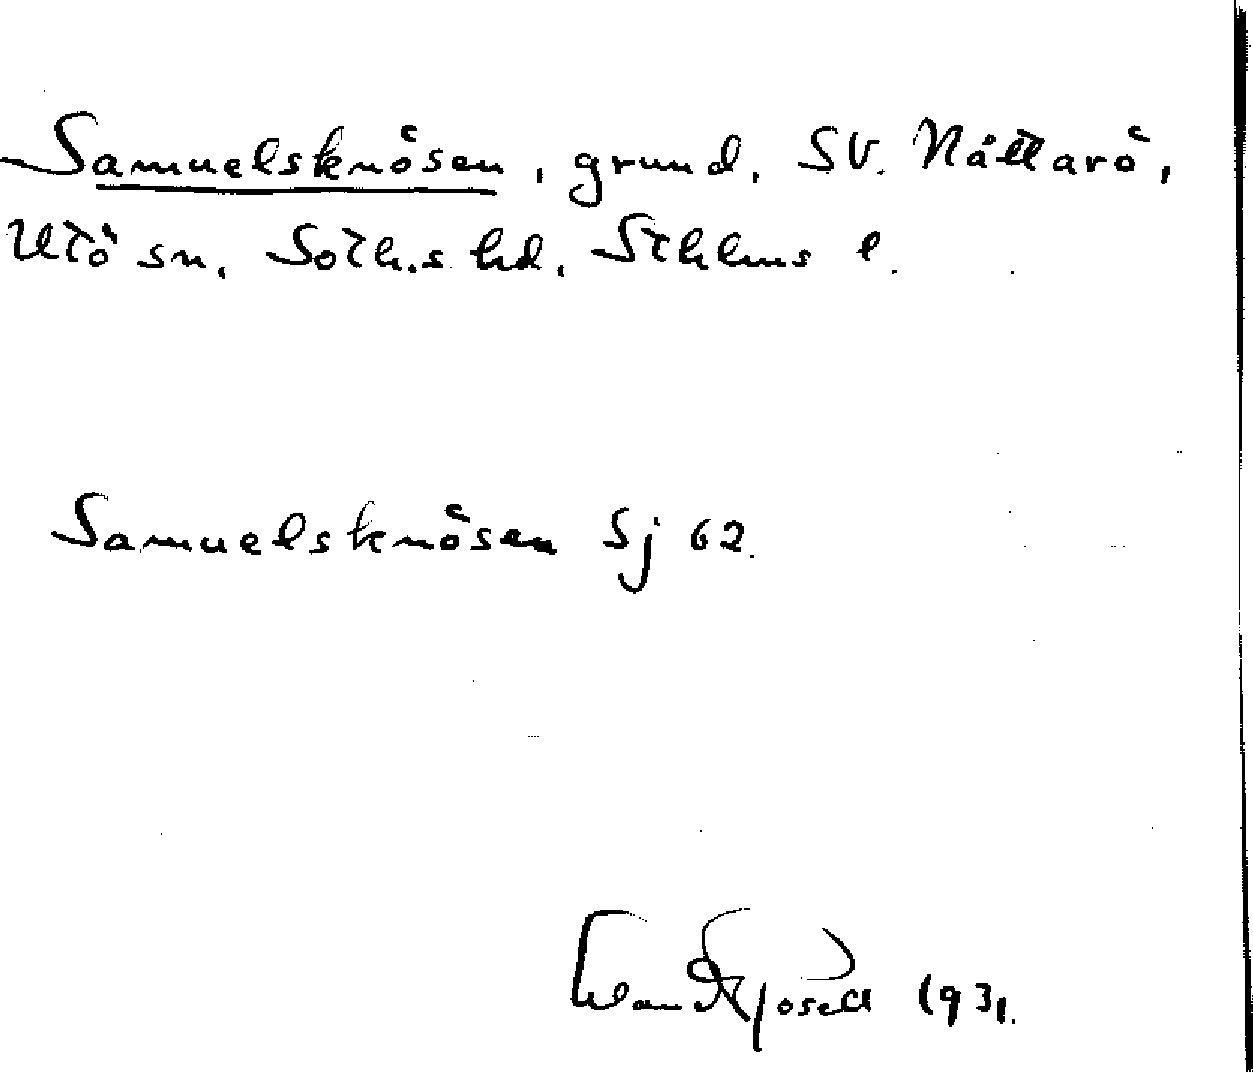 Samuelsknösen, grund, SV. Nåttarö,
Utö sn, Soth.s hd, Sthlms l.
Samuelsknösen Sj 62.
1931.